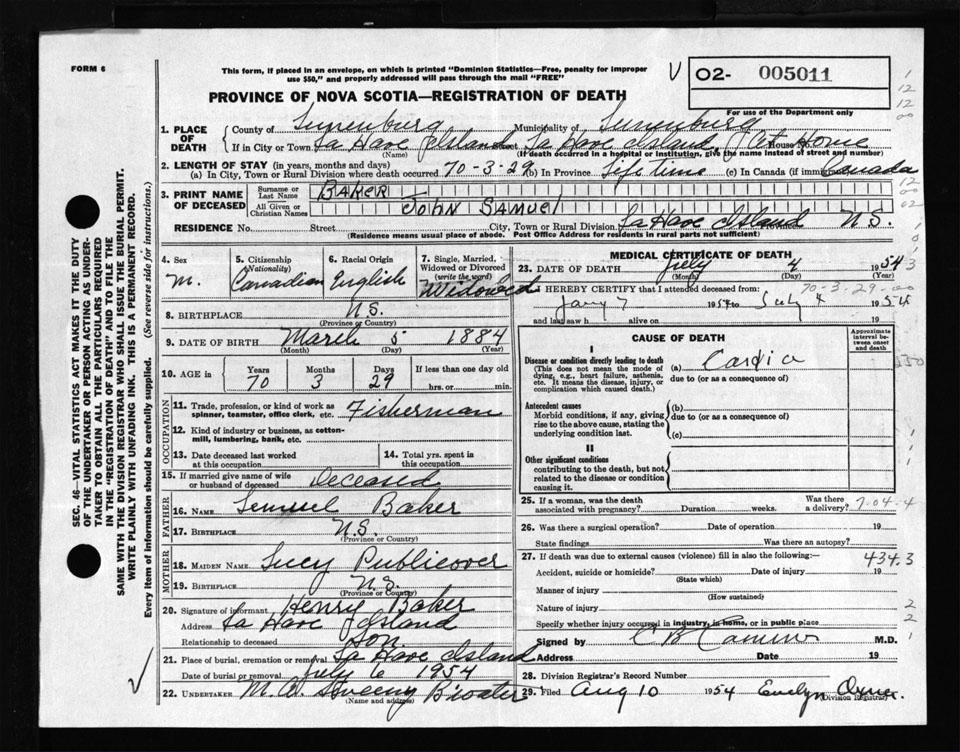 FORM 6
This form, if placed in an envelope, on which is printed "Dominion Statistics—Free, penalty for improper
use $50," and properly addressed will pass through the mail "FREE"
O2- 005011
For use of the Department only
PROVINCE OF NOVA SCOTIA—REGISTRATION OF DEATH
1. PLACE OF DEATH
County of Lunenburg Municipality of Lunenburg
If in City or Town La Have Island La Have Island House No. At Home
(Name) (If death occurred in a hospital or institution, give the name instead of street and number)
2. LENGTH OF STAY (in years, months and days)
(a) In City, Town or Rural Division where death occurred 70-3-29 (b) In Province Life time (c) In Canada (if immigrant) Canada
3. PRINT NAME OF DECEASED
Surname or Last Name BAKER
All Given or Christian Names JOHN SAMUEL
RESIDENCE No. Street City, Town or Rural Division La Have Island N.S.
(Residence means usual place of abode. Post Office Address for residents in rural parts not sufficient)
4. Sex M.
5. Citizenship (Nationality) Canadian
6. Racial Origin English
7. Single, Married, Widowed or Divorced (write the word) Widowed
8. BIRTHPLACE N.S.
(Province or Country)
9. DATE OF BIRTH March 5 1884
(Month) (Day) (Year)
10. AGE in Years 70 Months 3 Days 29 If less than one day old
hrs. or min.
OCCUPATION
11. Trade, profession or kind of work as spinner, teamster, office clerk, etc. Fisherman
12. Kind of industry or business, as cotton-mill, lumbering, bank, etc.
13. Date deceased last worked at this occupation
14. Total yrs. spent in this occupation
15. If married give name of wife or husband of deceased Deceased
FATHER
16. NAME Lemuel Baker
17. BIRTHPLACE N.S.
(Province or Country)
MOTHER
18. MAIDEN NAME Lucy Publicover
19. BIRTHPLACE N.S.
(Province or Country)
20. Signature of informant Henry Baker
Address La Have Island
Relationship to deceased Son
21. Place of burial, cremation or removal La Have Island
Date of burial or removal July 6 1954
22. UNDERTAKER M. Sweeny Bwater
(Name and address)
MEDICAL CERTIFICATE OF DEATH
23. DATE OF DEATH July 4 1954
(Month) (Day) (Year)
I HEREBY CERTIFY that I attended deceased from: 70-3-29-00
Jany 7 1954 to July 4 1954
and last saw h alive on 19
CAUSE OF DEATH
Approximate interval between onset and death
I
Disease or condition directly leading to death (a) Cardia
(This does not mean the mode of dying, e.g., heart failure, asthenia, etc. It means the disease, injury, or complication which caused death.)
due to (or as a consequence of)
Antecedent causes
Morbid conditions, if any, giving rise to the above cause, stating the underlying condition last.
(b)
due to (or as a consequence of)
(c)
II
Other significant conditions
contributing to the death, but not related to the disease or condition causing it.
25. If a woman, was the death associated with pregnancy? Duration weeks. Was there a delivery? 7-04-4
26. Was there a surgical operation? Date of operation 19
State findings Was there an autopsy?
27. If death was due to external causes (violence) fill in also the following: 434.3
Accident, suicide or homicide? Date of injury 19
(State which)
Manner of injury
(How sustained)
Nature of injury
Specify whether injury occurred in industry, in home, or in public place
Signed by M.D.
Address Date 19
28. Division Registrar's Record Number
29. Filed Aug 10 1954 Evelyn
(Division Registrar)
SEC. 46—VITAL STATISTICS ACT MAKES IT THE DUTY
OF THE UNDERTAKER OR PERSON ACTING AS UNDER-
TAKER TO OBTAIN ALL THE PARTICULARS REQUIRED
IN THE "REGISTRATION OF DEATH" AND TO FILE THE
SAME WITH THE DIVISION REGISTRAR WHO SHALL ISSUE THE BURIAL PERMIT.
WRITE PLAINLY WITH UNFADING INK. THIS IS A PERMANENT RECORD.
Every item of information should be carefully supplied. (See reverse side for instructions.)